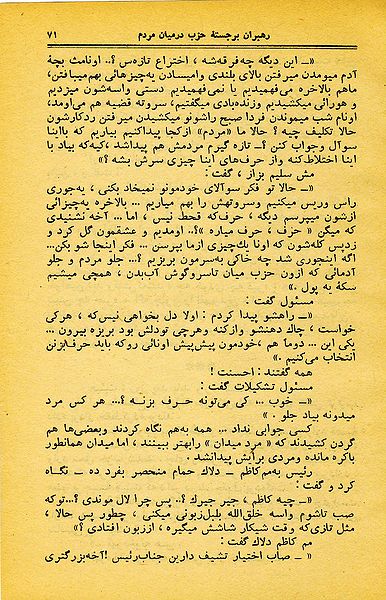 رهبران برجستهٔ حزب درمیان مردم ۷۱
«ـ این دیگه چه‌فرقه‌شه ، اختراع تازه‌س ؟.. اونامث بچهٔ
آدم میومدن میرفتن بالای بلندی وامیسادن یه‌چیزهائی بهم‌میبافتن،
ماهم بالاخره می‌فهمیدیم یا نمی‌فهمیدیم دستی واسه‌شون میزدیم
و هورائی میکشیدیم وزنده‌بادی میگفتیم، سروته قضیه هم می‌اومد،
اونام شب میموندن فردا صبح راشونو میکشیدن میرفتن ردکارشون
حالا تکلیف چیه ؟ حالا ما «مردم» ازکجا پیداکنیم بیاریم که بااینا
سوآل وجواب کنن ؟ـ تازه گیرم مردمش هم پیداشد ،کیه‌که بیاد با
اینا اختلاط‌کنه واز حرف‌های اینا چیزی سرش بشه ؟»
مش سلیم بزاز ، گفت :
«ـ حالا تو فکر سوآلای خودمونو نمیخاد بکنی ، یه‌جوری
راس وریس میکنیم وسروتهش را بهم میاریم ... بالاخره یه‌چیزائی
ازشون میپرسم دیگه ، حرف‌که قحط نیس ، اما ... آخه نشنیدی
که میگن « حرف ، حرف میاره »؟.. اومدیم و عشقمون گل کرد و
زدیس کله‌شون که اونا یك‌چیزی ازما بپرسن ... فکر اینجا شو بکن...
اگه اینجوری شد چه خاکی به‌سرمون بریزیم ؟... جلو مردم و جلو
آدمائی که ازون حزب میان تاسروگوش آب‌بدن ، همچی میشیم
سکهٔ یه پول .»
مسئول گفت :
«ـ راهشو پیدا کردم : اولا دل بخواهی نیس‌که ، هرکی
خواست ، چاك دهنشو وازکنه وهرچی تودلش بود بریزه بیرون ...
یکی این ... دوما هم ،خودمون پیش‌پیش اونائی روکه باید حرف‌بزنن
انتخاب می‌کنیم .»
همه گفتند : احسنت !
مسئول تشکیلات گفت :
«ـ خوب ... کی می‌تونه حرف بزنه ؟... هر کس مرد
میدونه بیاد جلو .»
کسی جوابی نداد ... همه به‌هم نگاه کردند وبعضی‌ها هم
گردن کشیدند که « مرد میدان » رابهتر ببینند ، اما میدان همانطور
باکره مانده ومردی برآیش پیدانشد .
رئیس به‌مم‌کاظم ـ دلاك حمام منحصر بفرد ده ـ نگاه
کرد و گفت :
«ـ چیه کاظم ، جیر جیرك ؟.. پس چرا لال موندی ؟...توکه
صب تاشوم واسه خلق‌الله بلبل‌زبونی میکنی ، چطور پس حالا ،
مثل تازی‌که وقت شیکار شاشش میگیره ، اززبون افتادی ؟»
مم کاظم دلاك گفت :
«ـ صاب اختیار تشیف دارین جناب‌رئیس !آخه‌بزرگتری